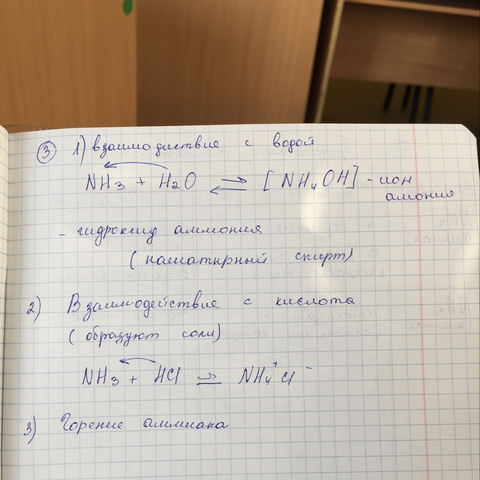 ③ 1) взаимодиствие с водой
NH3 + H2O ⇄ [NH4OH] - ион
амония
- гидроксид аммония
(нашатырный спирт)
2) Взаимодействие с кислота
(образуют соли)
NH3 + HCl ⇄ NH4⁺Cl⁻
3) Горение аммиака